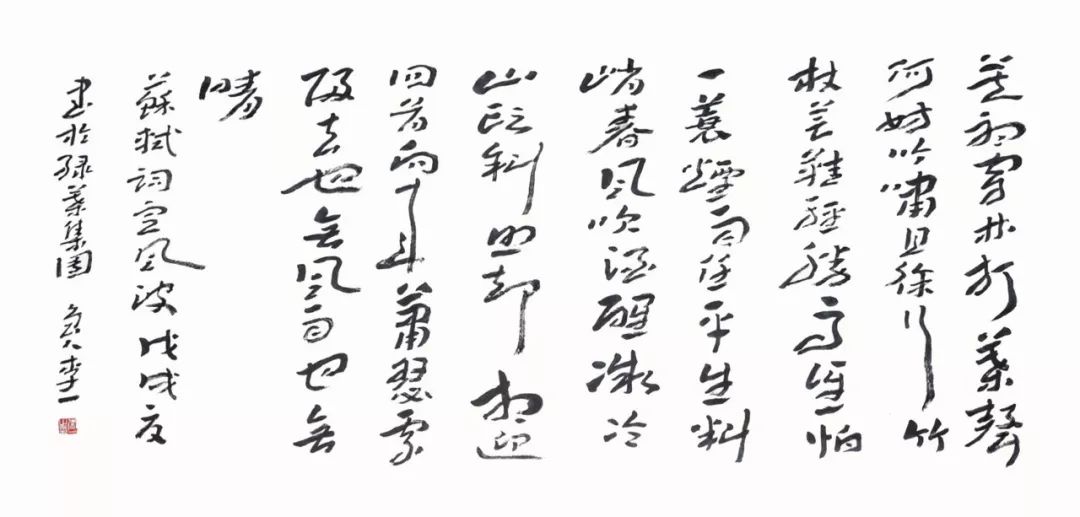 莫聽穿林打葉聲
何妨吟嘯且徐行竹
杖芒鞋輕勝馬誰怕
一蓑煙雨任平生料
峭春風吹酒醒微冷
山頭斜照却相迎
回首向来蕭瑟處
歸去也無風雨也無
晴
蘇軾詞定風波戊戌夏
書於綠葉集團 李一